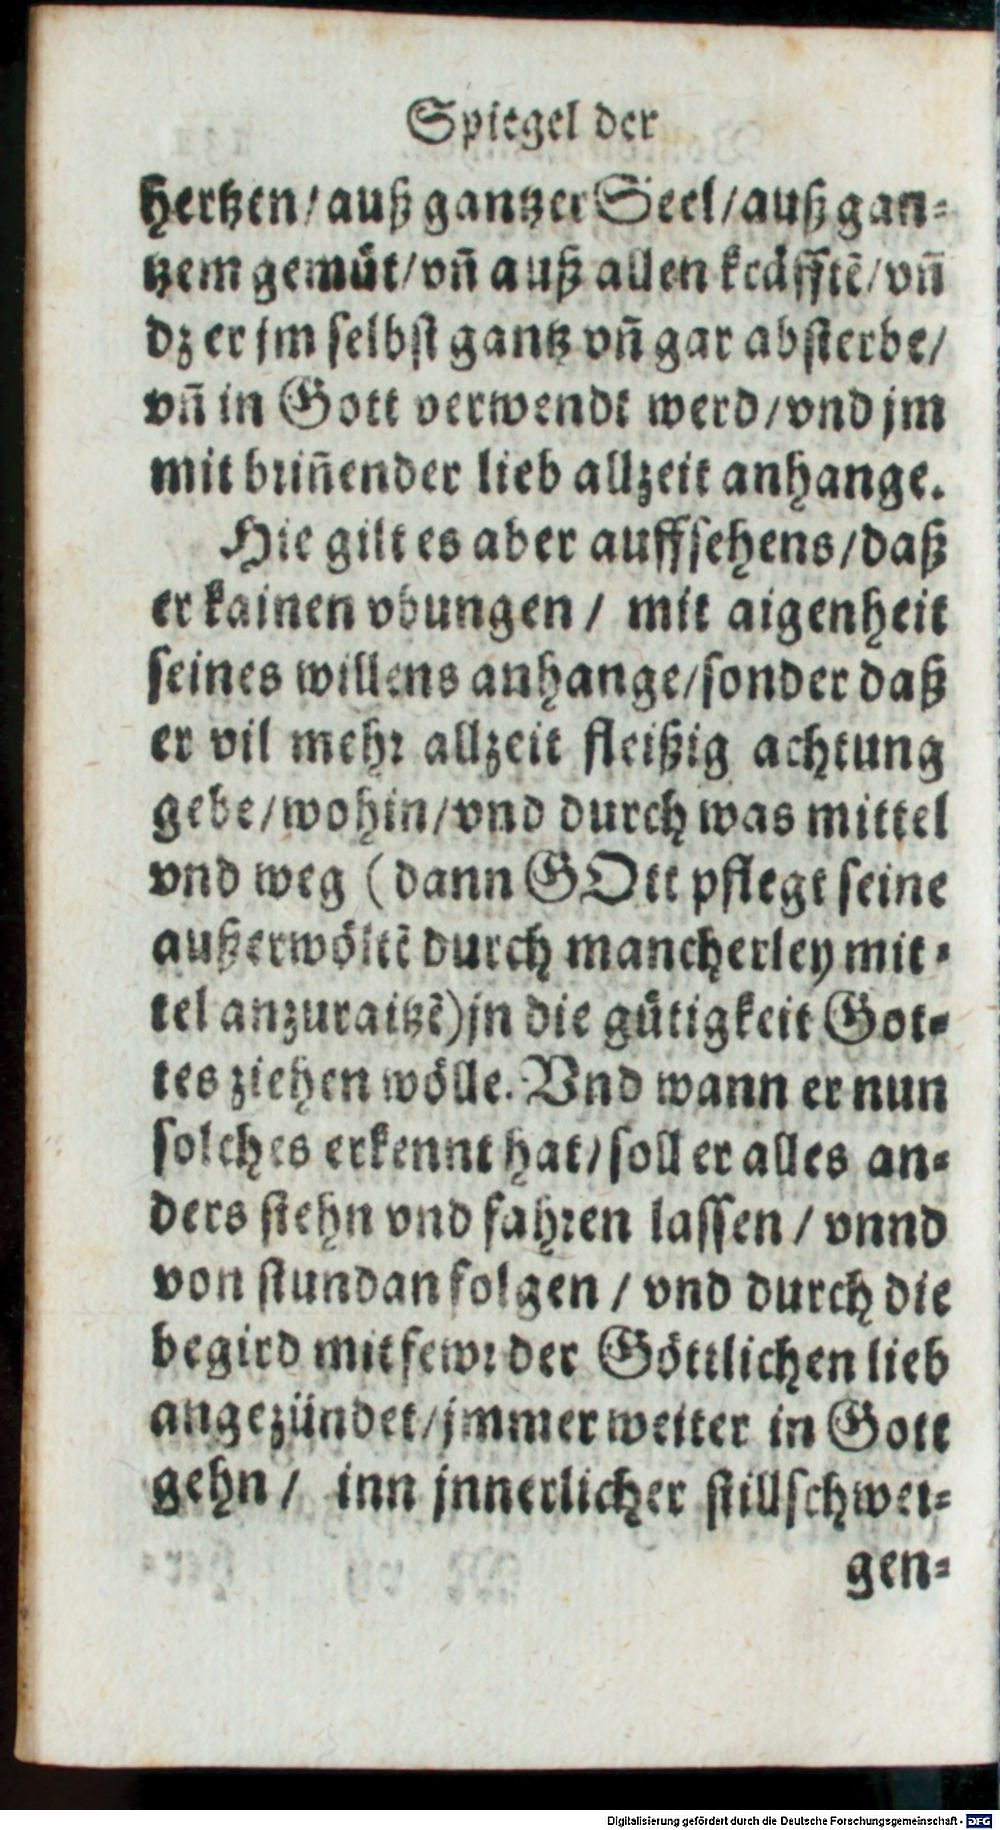 Spiegel der
hertzen/auß gantzer Seel/auß gan-
tzem gemüt/vñ auß allen kräfftẽ/vñ
dz er jm selbst gantz vñ gar absterbe/
vñ in Gott verwendt werd/vnd jm
mit briñender lieb allzeit anhange.
Hie gilt es aber auffsehens/daß
er kainen vbungen/ mit aigenheit
seines willens anhange/sonder daß
er vil mehr allzeit fleißig achtung
gebe/wohin/vnd durch was mittel
vnd weg (dann GOtt pflegt seine
außerwöltẽ durch mancherley mit-
tel anzuraitzẽ)jn die gütigkeit Got-
tes ziehen wölle. Vnd wann er nun
solches erkennt hat/soll er alles an-
ders stehn vnd fahren lassen/ vnnd
von stundan folgen/ vnd durch die
begird mit fewr der Göttlichen lieb
angezündet/jmmer weiter in Gott
gehn/ inn jnnerlicher stillschwei-
gen-
Digitalisierung gefördert durch die Deutsche Forschungsgemeinschaft - DFG